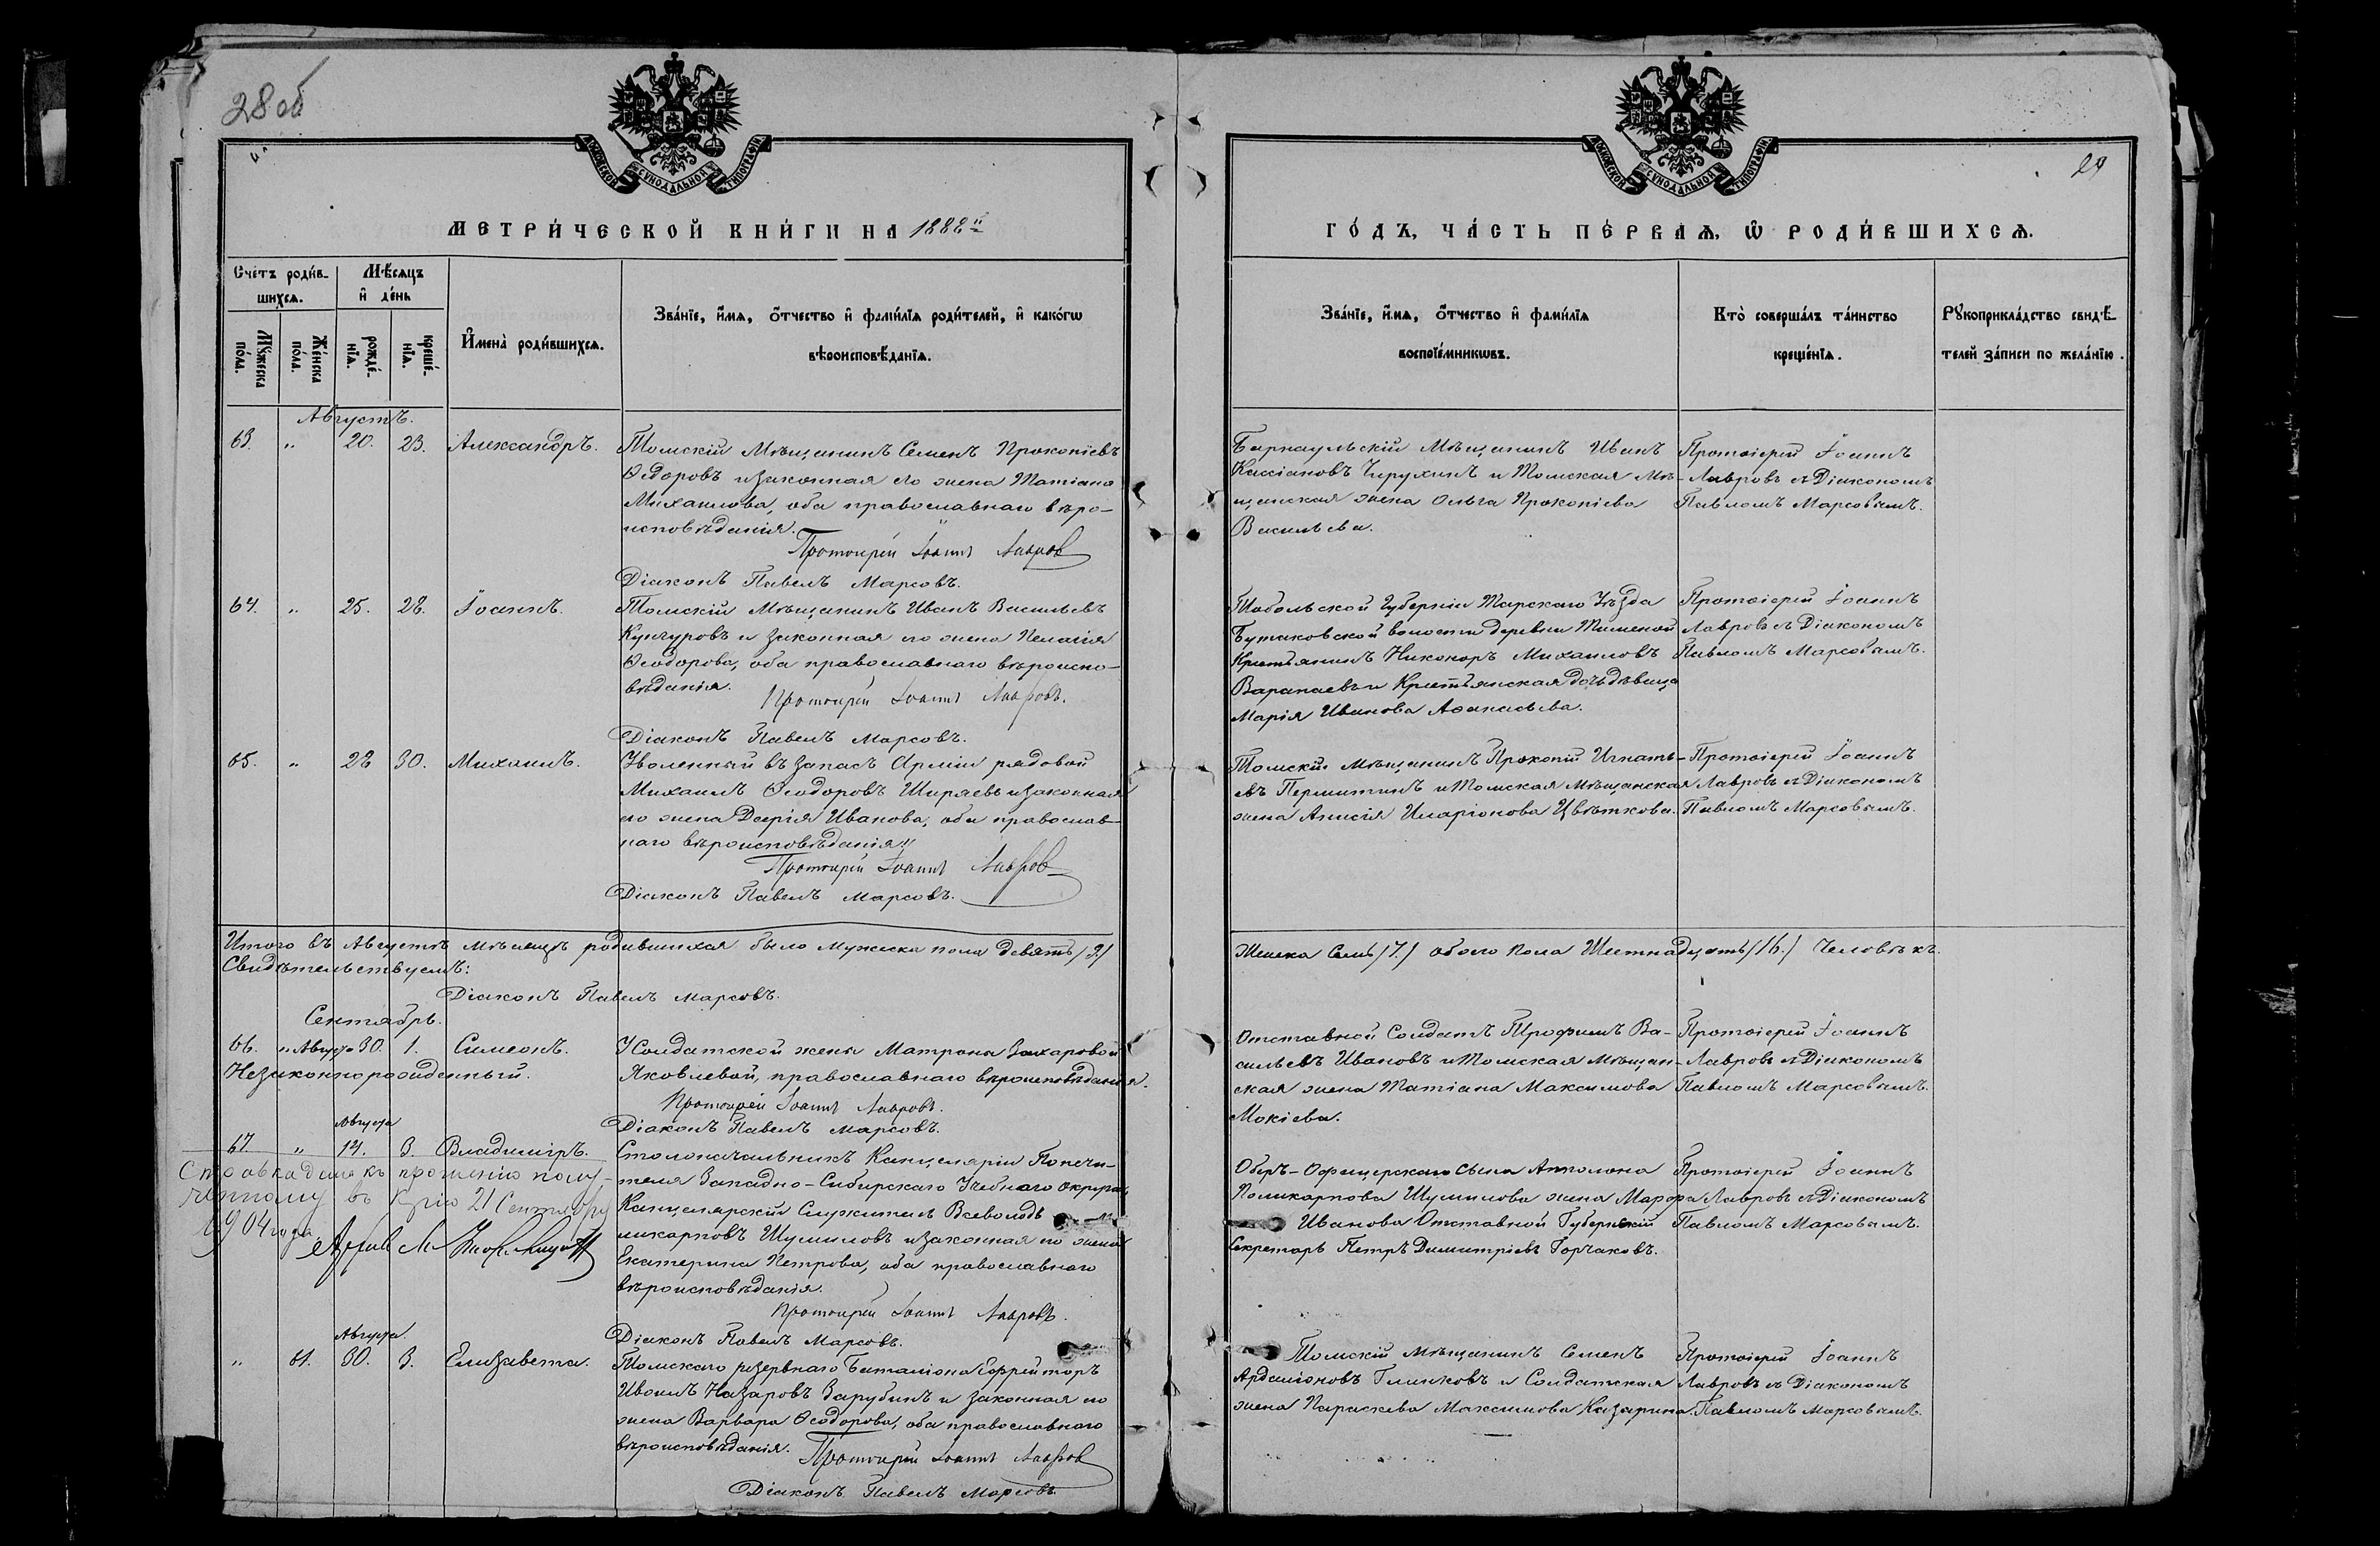 28 об
29
МОСКОВСКОЙ СУНОДАЛЬНОЙ ТИПОГРАФІИ
МОСКОВСКОЙ СУНОДАЛЬНОЙ ТИПОГРАФІИ
МЕТРИ́ЧЕСКОЙ КНИ́ГИ НА 1888й
ГО́ДЪ, ЧА́СТЬ ПЕ́РВАѦ, Ѡ РОДИ́ВШИХСѦ.
Сче́тъ роди́в-
шихсѧ.
Мѣ́сѧцъ
и҆ де́нь
Мꙋ́жеска по́ла.
Же́нска по́ла.
рожде́-
нїѧ.
креще́-
нїѧ.
И҆мена̀ роди́вшихсѧ.
Зва́нїе, и҆́мѧ, ѻ҆́тчество и҆ фами́лїѧ роди́телей, и҆ како́гѡ
вѣроисповѣ́данїѧ.
Зва́нїе, и҆́мѧ, ѻ҆́тчество и҆ фами́лїѧ
воспрїе́мникѡвъ.
Кто̀ соверша́лъ та́инство
креще́нїѧ.
Рꙋкоприкла́дство свидѣ́-
телей за́писи по жела́нїю.
Августъ.
63. " 20. 23. Александръ.
Томскій Мѣщанинъ Семенъ Прокопіевъ
Ѳедоровъ и законная его жена Татіана
Михаилова, оба православнаго вѣро-
исповѣданія.
Протоіерей Іоаннъ Лавров
Діаконъ Павелъ Марсовъ.
Барнаульскій Мѣщанинъ Иванъ
Кассіановъ Чирухинъ и Томская Мѣ-
щанская жена Ольга Прокопіева
Васильева.
Протоіерей Іоаннъ
Лавровъ съ Діакономъ
Павломъ Марсовымъ.
64. " 25. 28. Іоаннъ.
Томскій Мѣщанинъ Иванъ Васильевъ
Кунгуровъ и законная его жена Пелагія
Ѳеодорова, оба православнаго вѣроиспо-
вѣданія.
Протоіерей Іоаннъ Лавровъ.
Діаконъ Павелъ Марсовъ.
Тобольской Губерніи Тарскаго Уѣзда
Бутаковской волости деревни
Крестьянинъ Никоноръ Михаиловъ
Варапаевъ и Крестьянская дочь дѣвица
Марія Иванова Аѳанасьева.
Протоіерей Іоаннъ
Лавровъ съ Діакономъ
Павломъ Марсовымъ.
65. " 28 30. Михаилъ.
Уволенный въ запасъ Арміи рядовой
Михаилъ Ѳеодоровъ Ширяевъ и законная
его жена Дарія Иванова, оба православ-
наго вѣроисповѣданія.
Протоіерей Іоаннъ Лавров
Діаконъ Павелъ Марсовъ.
Томскій мѣщанинъ Прокопій Игнать-
евъ Пермитинъ и Томская Мѣщанская
жена Анисія Иларіонова Цвѣткова.
Протоіерей Іоаннъ
Лавровъ съ Діакономъ
Павломъ Марсовымъ.
Итого въ Августѣ мѣсяцѣ родившихся было Мужеска пола девять /9./
Женска семь /7./ обоего пола Шестнадцать /16./ Человѣкъ.
Свидѣтельствуемъ:
Діаконъ Павелъ Марсовъ.
Сентябрь.
66. " Августа 30. 1. Симеонъ.
Незаконнорожденный.
У Солдатской жены Матроны Захаровой
Яковлевой, православнаго вѣроисповѣданія.
Протоіерей Іоаннъ Лавровъ.
Діаконъ Павелъ Марсовъ.
Отставной Солдатъ Трофимъ Ва-
сильевъ Ивановъ и Томская Мѣщан-
ская жена Татіана Максимова
Мокіева.
Протоіерей Іоаннъ
Лавровъ съ Діакономъ
Павломъ Марсовымъ.
Августа
67. " 14. 3. Владиміръ.
Справка дана къ прошенію полу-
ченному въ 21 Сентября
1904 года.
Столоначальникъ Канцеляріи Попечи-
теля Западно-Сибирскаго Учебнаго округа,
Канцелярскій Служитель Всеволодъ
ликарповъ Шумиловъ и законная его жена
Екатерина Петрова, оба православнаго
вѣроисповѣданія.
Протоіерей Іоаннъ Лавровъ.
Діаконъ Павелъ Марсовъ.
Оберъ-Офицерскаго сына Апполона
Поликарпова Шумилова жена Марѳа
Иванова Отставной Губернскій
Секретарь Петръ Димитріевъ Горчаковъ.
Протоіерей Іоаннъ
Лавровъ съ Діакономъ
Павломъ Марсовымъ.
Августа.
" 61. 30. 3. Елизавета.
Томскаго резервнаго Баталіона Ефрейторъ
Иванъ Назаровъ Зарубинъ и законная его
жена Варвара Ѳеодорова, оба православнаго
вѣроисповѣданія.
Протоіерей Іоаннъ Лавров
Діаконъ Павелъ Марсовъ
Томскій мѣщанинъ Семенъ
Ардаліоновъ Глинковъ и Солдатская
жена Параскева Максимова Казарина.
Протоіерей Іоаннъ
Лавровъ съ Діакономъ
Павломъ Марсовымъ.